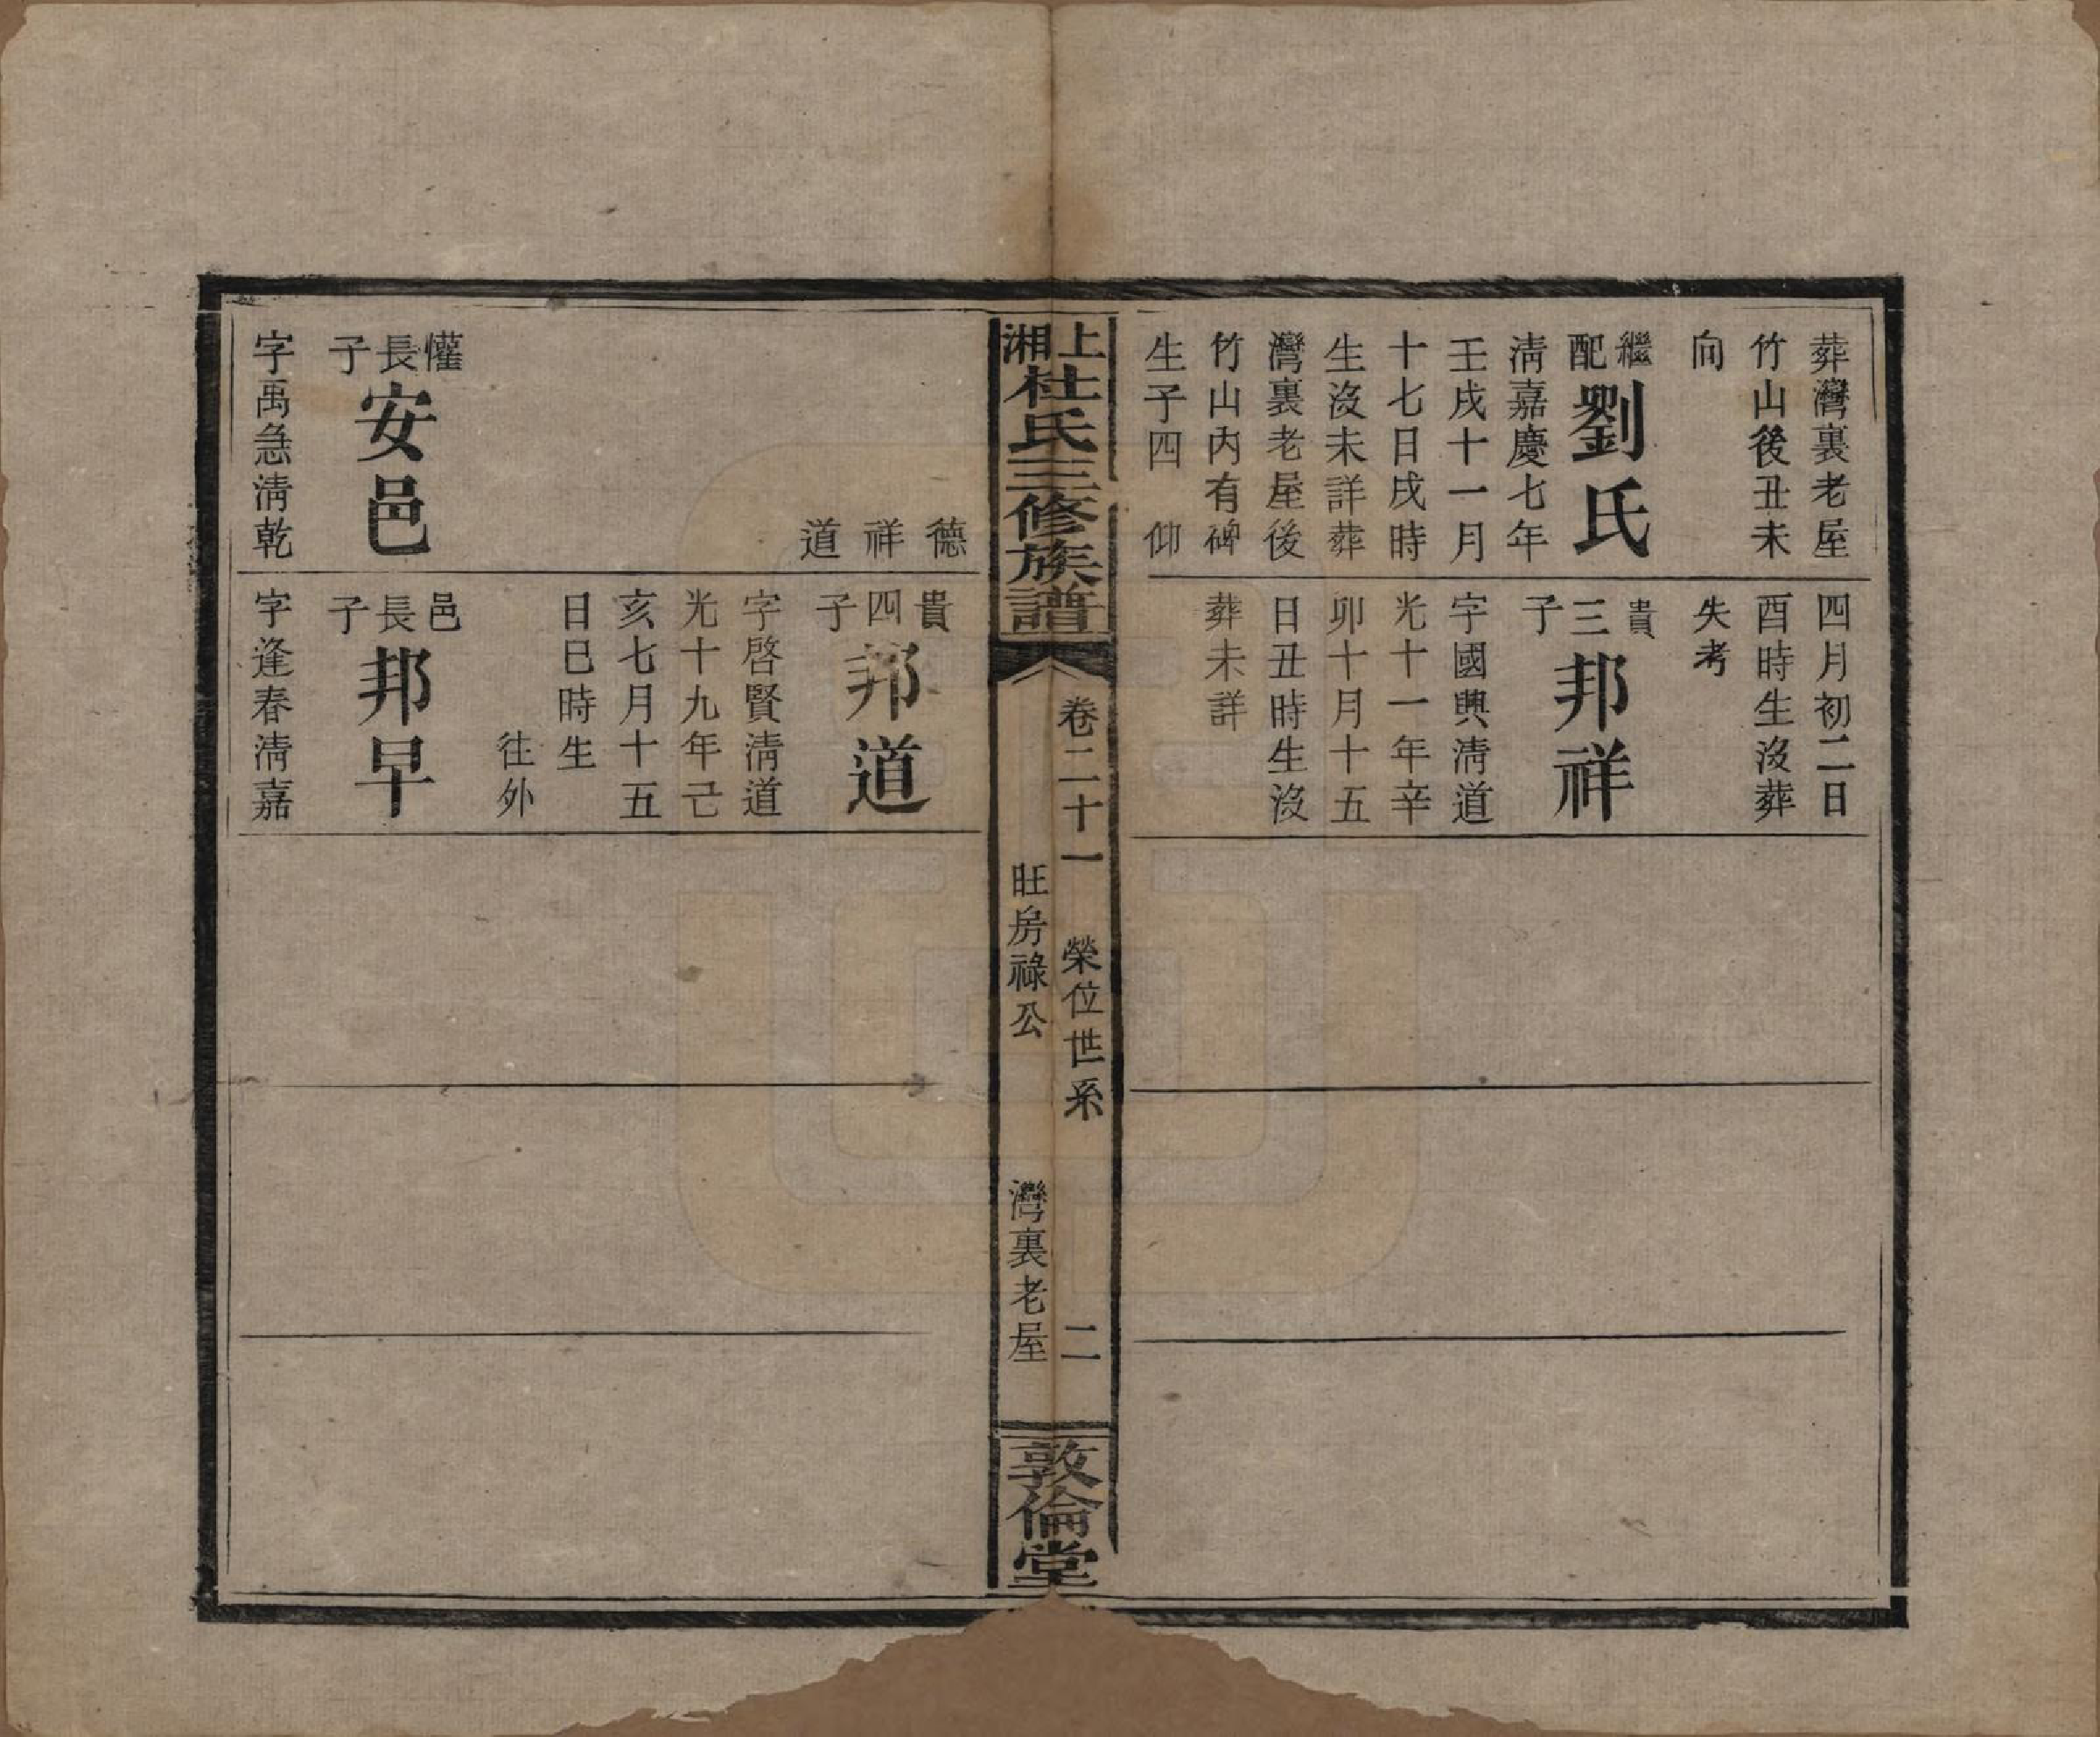 葬灣裏老屋
竹山後丑未
向
繼配劉氏
淸嘉慶七年
壬戌十一月
十七日戌時
生沒未詳葬
灣裏老屋後
竹山內有碑
生子四　仰
四月初二日
酉時生沒葬
失考
貴三子邦祥
字國興淸道
光十一年辛
卯十月十五
日丑時生沒
葬未詳
上湘杜氏三修族譜
卷二十一　榮位世系　二
旺房祿公　灣裏老屋
敦倫堂
德
祥
道
懽長子安邑
字禹惫淸乾
貴四子邦道
字啓賢淸道
光十九年己
亥七月十五
日巳時生
往外
邑長子邦早
字逢春淸嘉